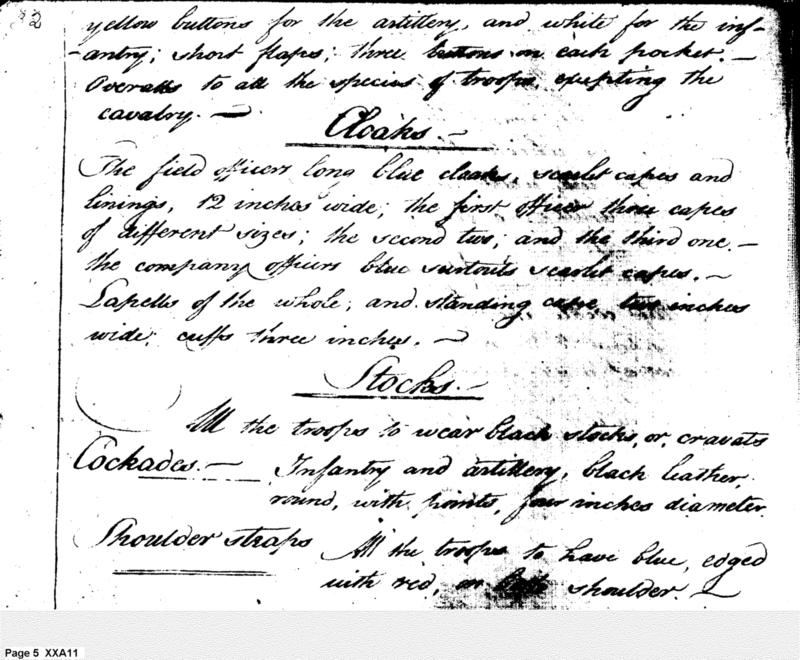 32
yellow buttons for the artillery, and white for the inf-
-antry; short flaps; three buttons on each pocket. —
Overalls to all the species of troops, excepting the
cavalry. —
Cloaks. —
The field officers long blue cloaks, scarlet capes and
linings, 12 inches wide; the first officer three capes
of different sizes; the second two; and the third one. —
the company officers blue surtouts scarlet capes. —
Lapells of the whole; and standing cape two inches
wide; cuffs three inches. —
Stocks. —
All the troops to wear black stocks, or, cravats
Cockades. — Infantry and artillery, black leather,
round, with points, four inches diameter.
Shoulder straps All the troops to have blue, edged
with red, on both shoulder. —
Page 5 XXA11